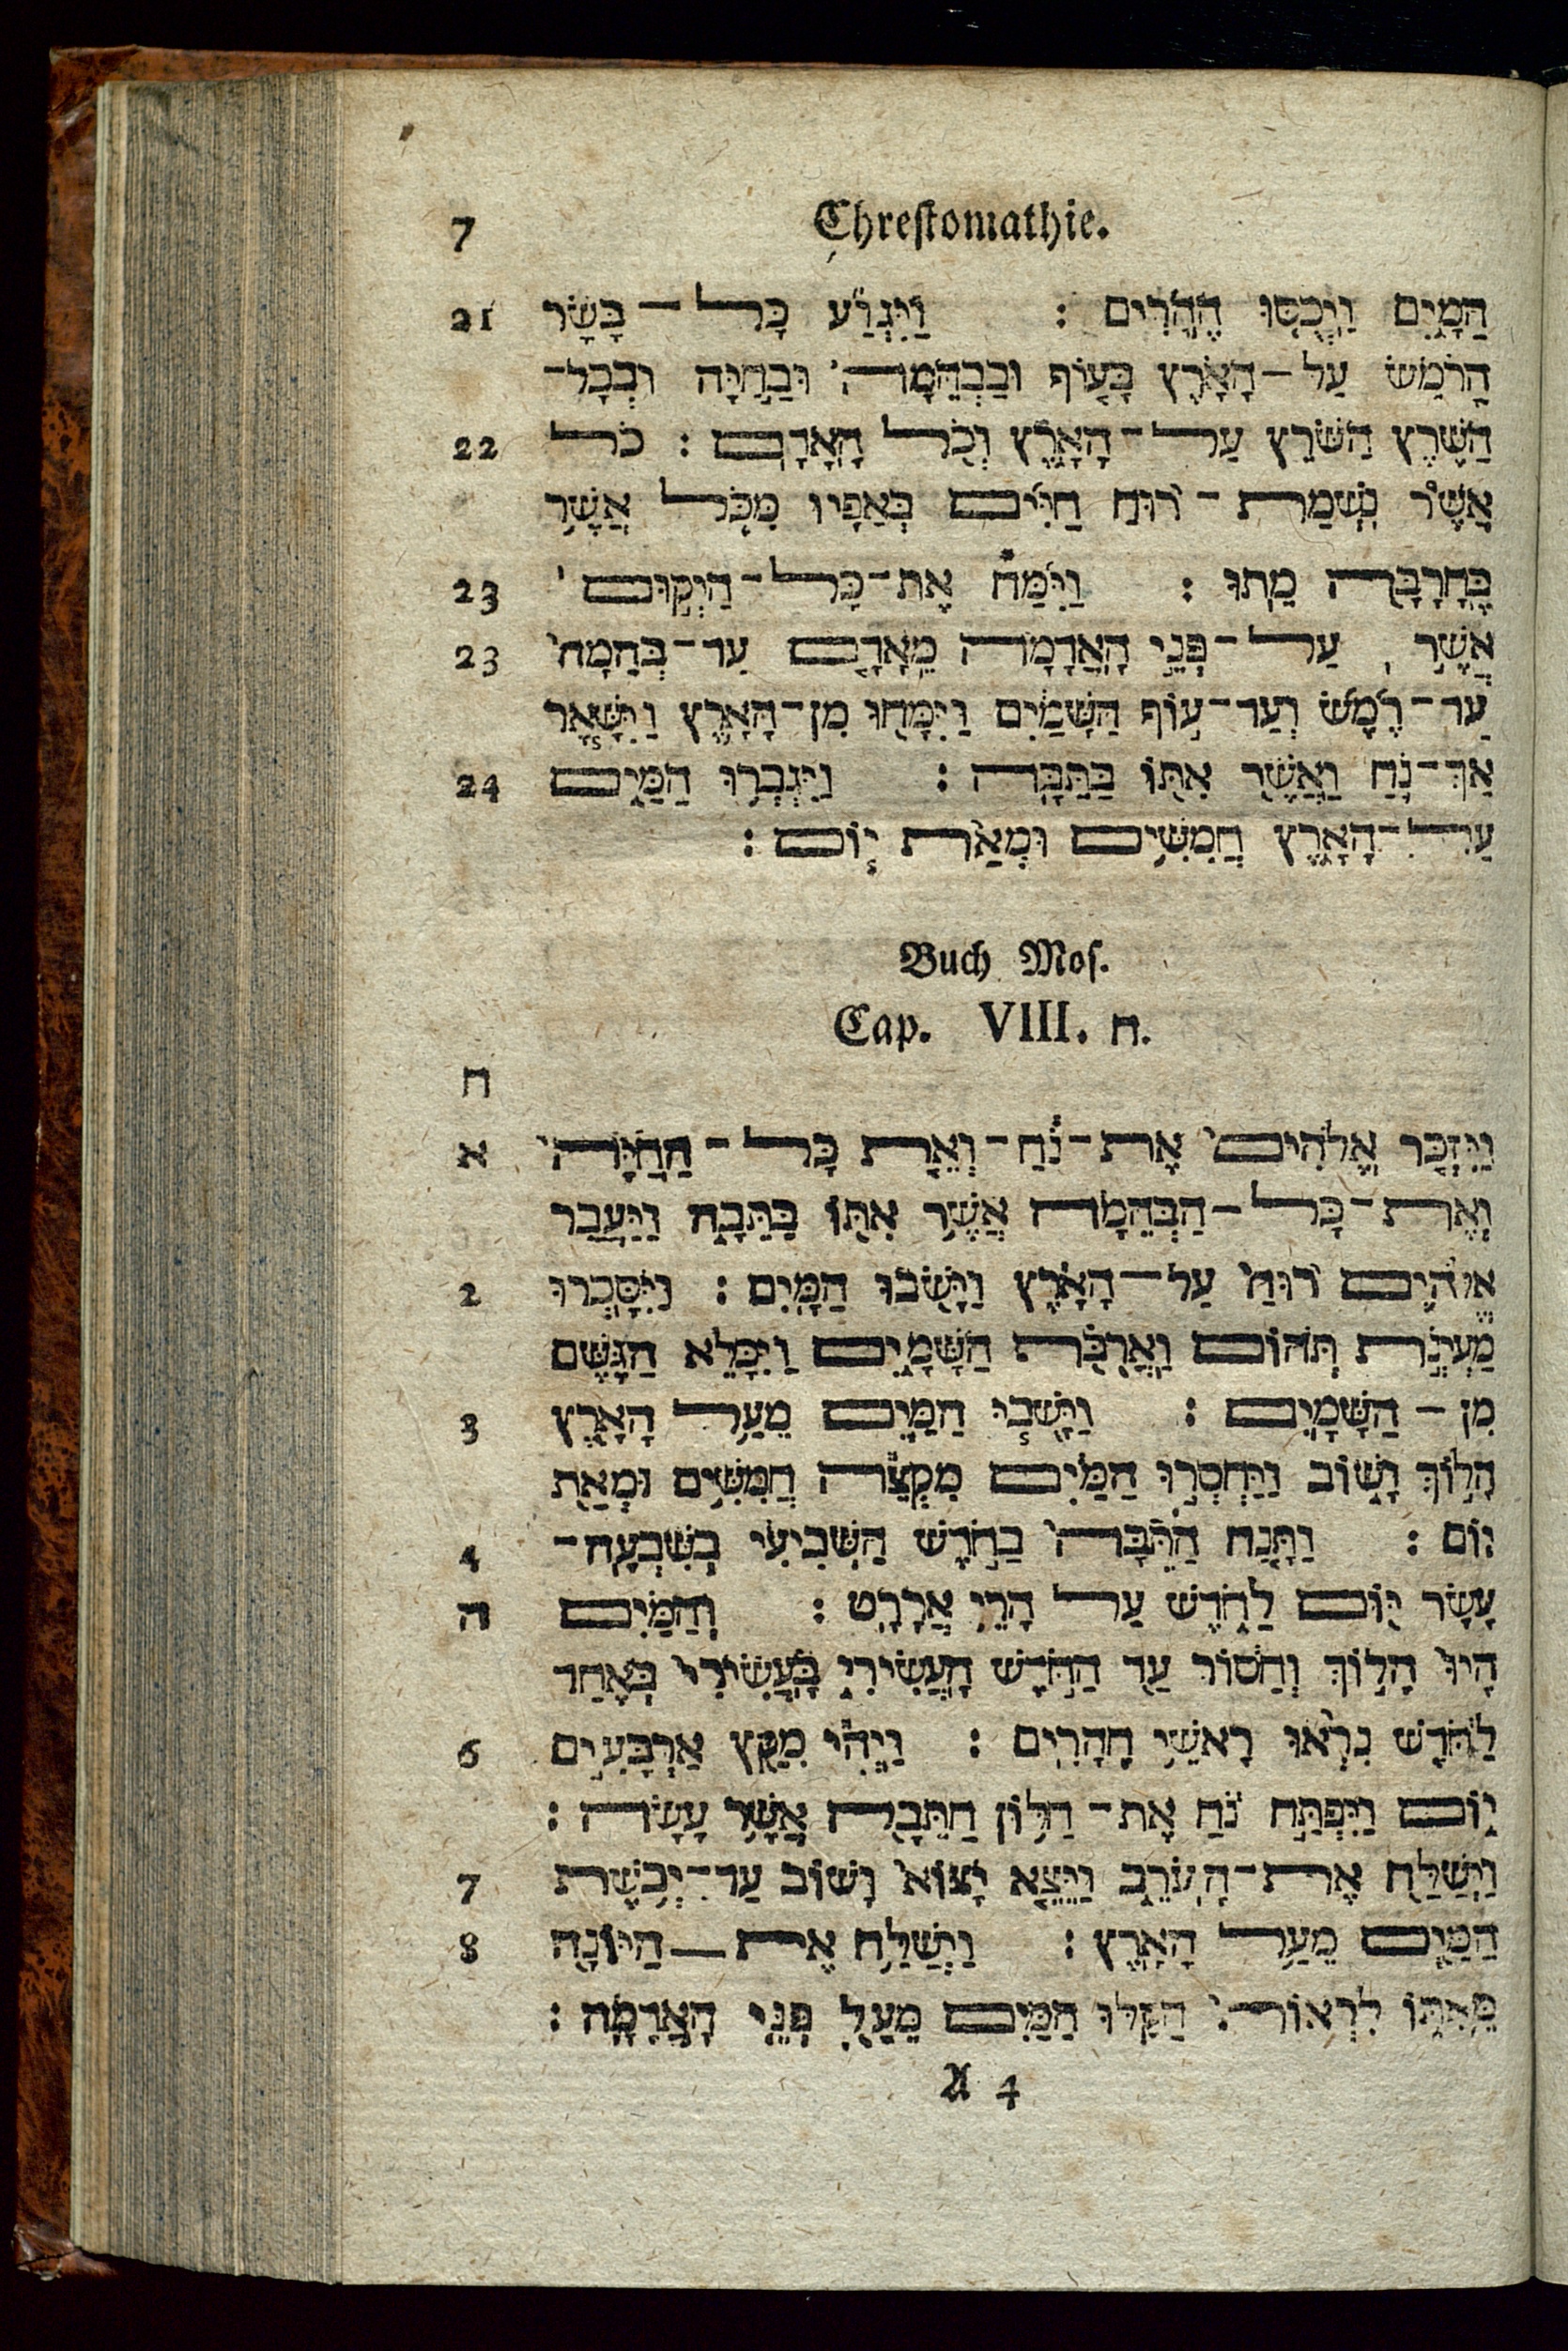 7 Chrestomathie.
הַמָּיִם וַיְכֻסּוּ הֶהָרִים : וַיִּגְוַע כָּל־בָּשָׂר 21
הָרֹמֵשׂ עַל־הָאָרֶץ בָּעוֹף וּבַבְּהֵמָה וּבַחַיָּה וּבְכָל־
הַשֶּׁרֶץ הַשֹּׁרֵץ עַל־הָאָרֶץ וְכֹל הָאָדָם : כֹּל 22
אֲשֶׁר נִשְׁמַת־רוּחַ חַיִּים בְּאַפָּיו מִכֹּל אֲשֶׁר
בֶּחָרָבָה מֵתוּ : וַיִּמַח אֶת־כָּל־הַיְקוּם 23
אֲשֶׁר עַל־פְּנֵי הָאֲדָמָה מֵאָדָם עַד־בְּהֵמָה 23
עַד־רֶמֶשׂ וְעַד־עוֹף הַשָּׁמַיִם וַיִּמָּחוּ מִן־הָאָרֶץ וַיִּשָּׁאֶר
אַךְ־נֹחַ וַאֲשֶׁר אִתּוֹ בַּתֵּבָה : וַיִּגְבְּרוּ הַמַּיִם 24
עַל־הָאָרֶץ חֲמִשִּׁים וּמְאַת יוֹם :
Buch Mos.
Cap. VIII. ח.
ח
וַיִּזְכֹּר אֱלֹהִים אֶת־נֹחַ־וְאֵת כָּל־הַחַיָּה א
וְאֶת־כָּל־הַבְּהֵמָה אֲשֶׁר אִתּוֹ בַּתֵּבָה וַיַּעֲבֵר
אֱלֹהִים רוּחַ עַל־הָאָרֶץ וַיָּשֹׁכּוּ הַמָּיִם : וַיִּסָּכְרוּ 2
מַעְיְנֹת תְּהוֹם וַאֲרֻבֹּת הַשָּׁמָיִם וַיִּכָּלֵא הַגֶּשֶׁם
מִן־הַשָּׁמָיִם : וַיָּשֻׁבוּ הַמַּיִם מֵעַל הָאָרֶץ 3
הָלוֹךְ וָשׁוֹב וַיַּחְסְרוּ הַמַּיִם מִקְצֵה חֲמִשִּׁים וּמְאַת
יוֹם : וַתָּנַח הַתֵּבָה בַּחֹדֶשׁ הַשְּׁבִיעִי בְּשִׁבְעָה־ 4
עָשָׂר יוֹם לַחֹדֶשׁ עַל הָרֵי אֲרָרָט : וְהַמַּיִם ה
הָיוּ הָלוֹךְ וְחָסוֹר עַד הַחֹדֶשׁ הָעֲשִׂירִי בָּעֲשִׂירִי בְּאֶחָד
לַחֹדֶשׁ נִרְאוּ רָאשֵׁי הֶהָרִים : וַיְהִי מִקֵּץ אַרְבָּעִים 6
יוֹם וַיִּפְתַּח נֹחַ אֶת־חַלּוֹן הַתֵּבָה אֲשֶׁר עָשָׂה :
וַיְשַׁלַּח אֶת־הָעֹרֵב וַיֵּצֵא יָצוֹא וָשׁוֹב עַד־יְבֹשֶׁת 7
הַמַּיִם מֵעַל הָאָרֶץ : וַיְשַׁלַּח אֶת־הַיּוֹנָה 8
מֵאִתּוֹ לִרְאוֹת הֲקַלּוּ הַמַּיִם מֵעַל פְּנֵי הָאֲדָמָה :
A 4